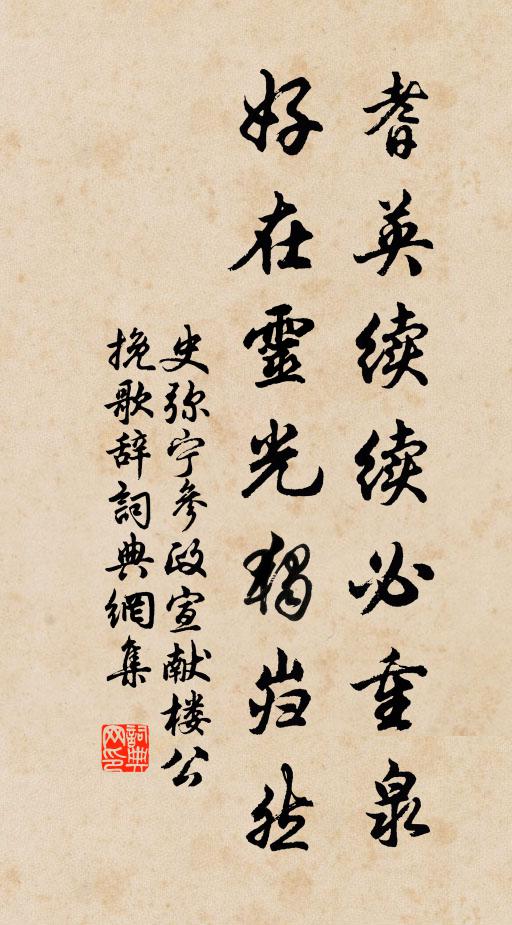 耆英续续必重泉
好在靈光獨岿然
史弥宁參政宣献楼公
挽歌辞詞典網集
詞典网印